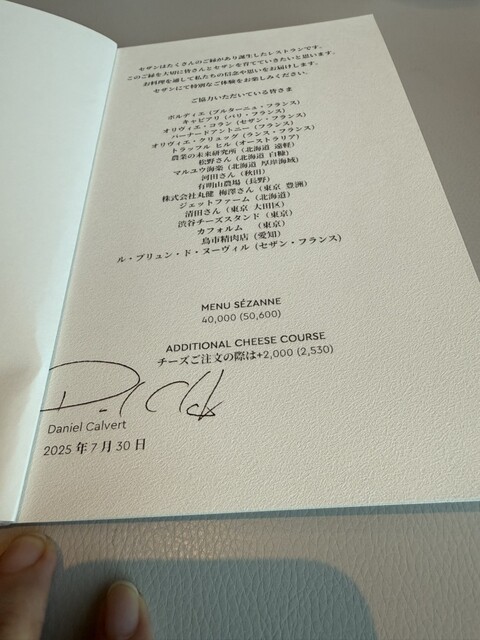 セザンはたくさんのご縁があり誕生したレストランです。
このご縁を大切に皆さんとセザンを育てていきたいと思います。
お料理を通して私たちの信念や想いをお届けします。
セザンにて特別なご体験をお楽しみください。
ご協力いただいている皆さま
ボルディエ (ブルターニュ・フランス)
キャビアリ (パリ・フランス)
オリヴィエ・コラン (セザン・フランス)
バーナードアントニー (フランス)
オリヴィエ・クリュッグ (ランス・フランス)
トラッフル ヒル (オーストラリア)
農業の未来研究所 (北海道 遠軽)
松野さん (北海道 白糠)
マルユウ海楽 (北海道 厚岸海域)
河田さん (秋田)
有明山農場 (長野)
株式会社丸健 梅澤さん (東京 豊洲)
ジェットファーム (北海道)
清田さん (東京 大田区)
渋谷チーズスタンド (東京)
カフォルム (東京)
鳥市精肉店 (愛知)
ル・ブリュン・ド・ヌーヴィル (セザン・フランス)
MENU SÉZANNE
40,000 (50,600)
ADDITIONAL CHEESE COURSE
チーズご注文の際は+2,000 (2,530)
Daniel Calvert
2025 年 7 月 30 日